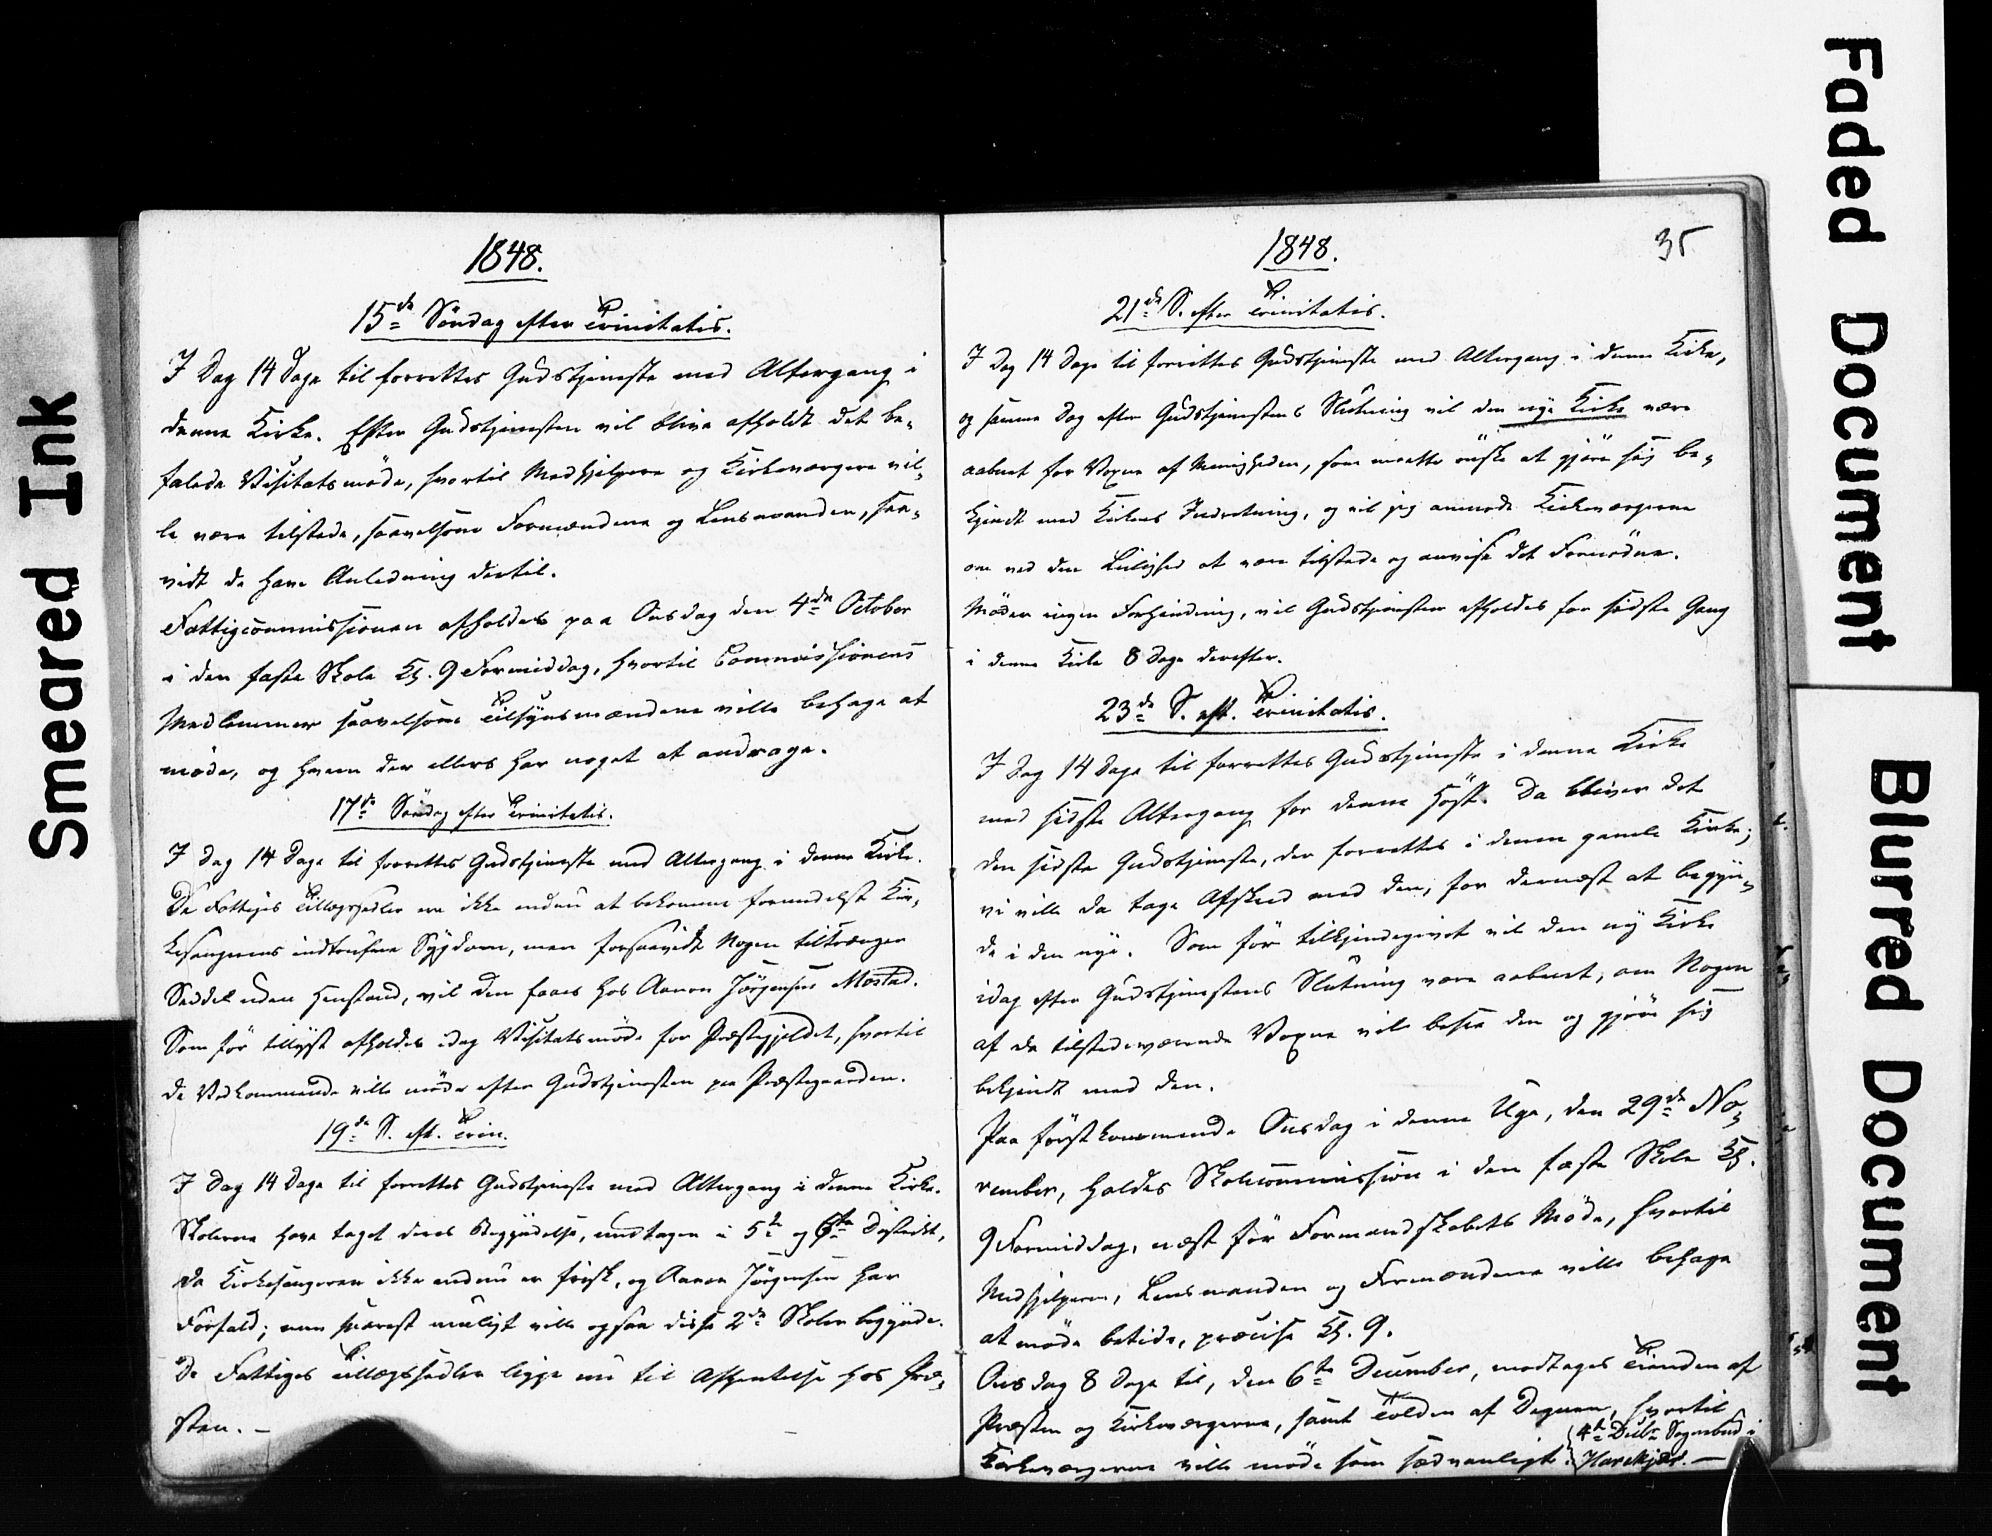 Smeared Ink
1848.
15de Söndag efter Trinitatis.
I Dag 14 Dage til forrettes Gudstjeneste med Altergang i
denne Kirke. Efter Gudstjenesten vil blive afholdt det be-
falede Visitatsmöde, hvortil Medhjelpere og Kirkeværgere vil-
le være tilstede, saavelsom Formændene og Lensmanden, saa-
vidt de have Anledning dertil.
Fattigcommissionen afholdes paa Onsdag den 4de October
i den faste Skole Kl. 9 Formiddag, hvortil Commissionens
Medlemmer saavelsom Tilsynsmændene ville behage at
möde, og hvem der ellers har noget at andrage.
17de Söndag efter Trinitatis.
I Dag 14 Dage til forrettes Gudstjeneste med Altergang i denne Kirke.
De Fattiges Tillægssedler ere ikke endnu at bekomme formedelst Kir-
kesangerens indtrufne Sygdom, men forsaavidt Nogen tiltrænger
Seddel uden Henstand, vil den faaes hos Aaron Jörgensen Mostad.
Som för tillyst afholdes idag Visitatsmöde for Præstegjeldet, hvortil
de Vedkommende ville möde efter Gudstjenesten paa Præstegaarden.
19de S. eft. Trin.
I Dag 14 Dage til forrettes Gudstjeneste med Altergang i denne Kirke.
Skolerne have taget deres Begyndelse, undtagen i 5te og 6te District,
da Kirkesangeren ikke endnu er frisk, og Aaron Jörgensen har
Forfald; men snarest muligt ville ogsaa disse 2de Skoler begynde.
De Fattiges Tillægssedler ligge nu til Afhentelse hos Præ-
sten. –
1848.
35
21de S. efter Trinitatis.
I Dag 14 Dage til forrettes Gudstjeneste med Altergang i denne Kirke,
og samme Dag efter Gudstjenestens Slutning vil den nye Kirke være
aabnet for Voxne af Menigheden, som maatte önske at gjöre sig be-
kjendt med Kirkens Indretning, og vil jeg anmode Kirkeværgerne
om ved den Leilighed at være tilstede og anvise det Fornödne.
Möder ingen Forhindring, vil Gudstjenesten afholdes for sidste Gang
i denne Kirke 8 Dage derefter.
23de S. eft. Trinitatis.
I Dag 14 Dage til forrettes Gudstjeneste i denne Kirke
med sidste Altergang for denne Höst. Da bliver det
den sidste Gudstjeneste, der forrettes i denne gamle Kirke;
vi ville da tage Afsked med den, for dernæst at begyn-
de i den nye. Som för tilkjendegivet vil den ny Kirke
idag efter Gudstjenestens Slutning være aabnet, om Nogen
af de tilstedeværende Voxne vil besee den og gjöre sig
bekjendt med den.
Paa förstkommende Onsdag i denne Uge, den 29de No-
vember, holdes Skolecommission i den faste Skole Kl.
9 Formiddag, næst för Formandskabets Möde, hvortil
Medhjelperne, Lensmanden og Formændene ville behage
at möde betids, præcise Kl. 9.
Onsdag 8 Dage til, den 6te December, modtages Tienden af
Præsten og Kirkeværgerne, samt Tolden af Degnen, hvortil
Kirkeværgerne ville möde som sædvanligt.
4de Decbr Sognebud i
Faded Document
Blurred Document